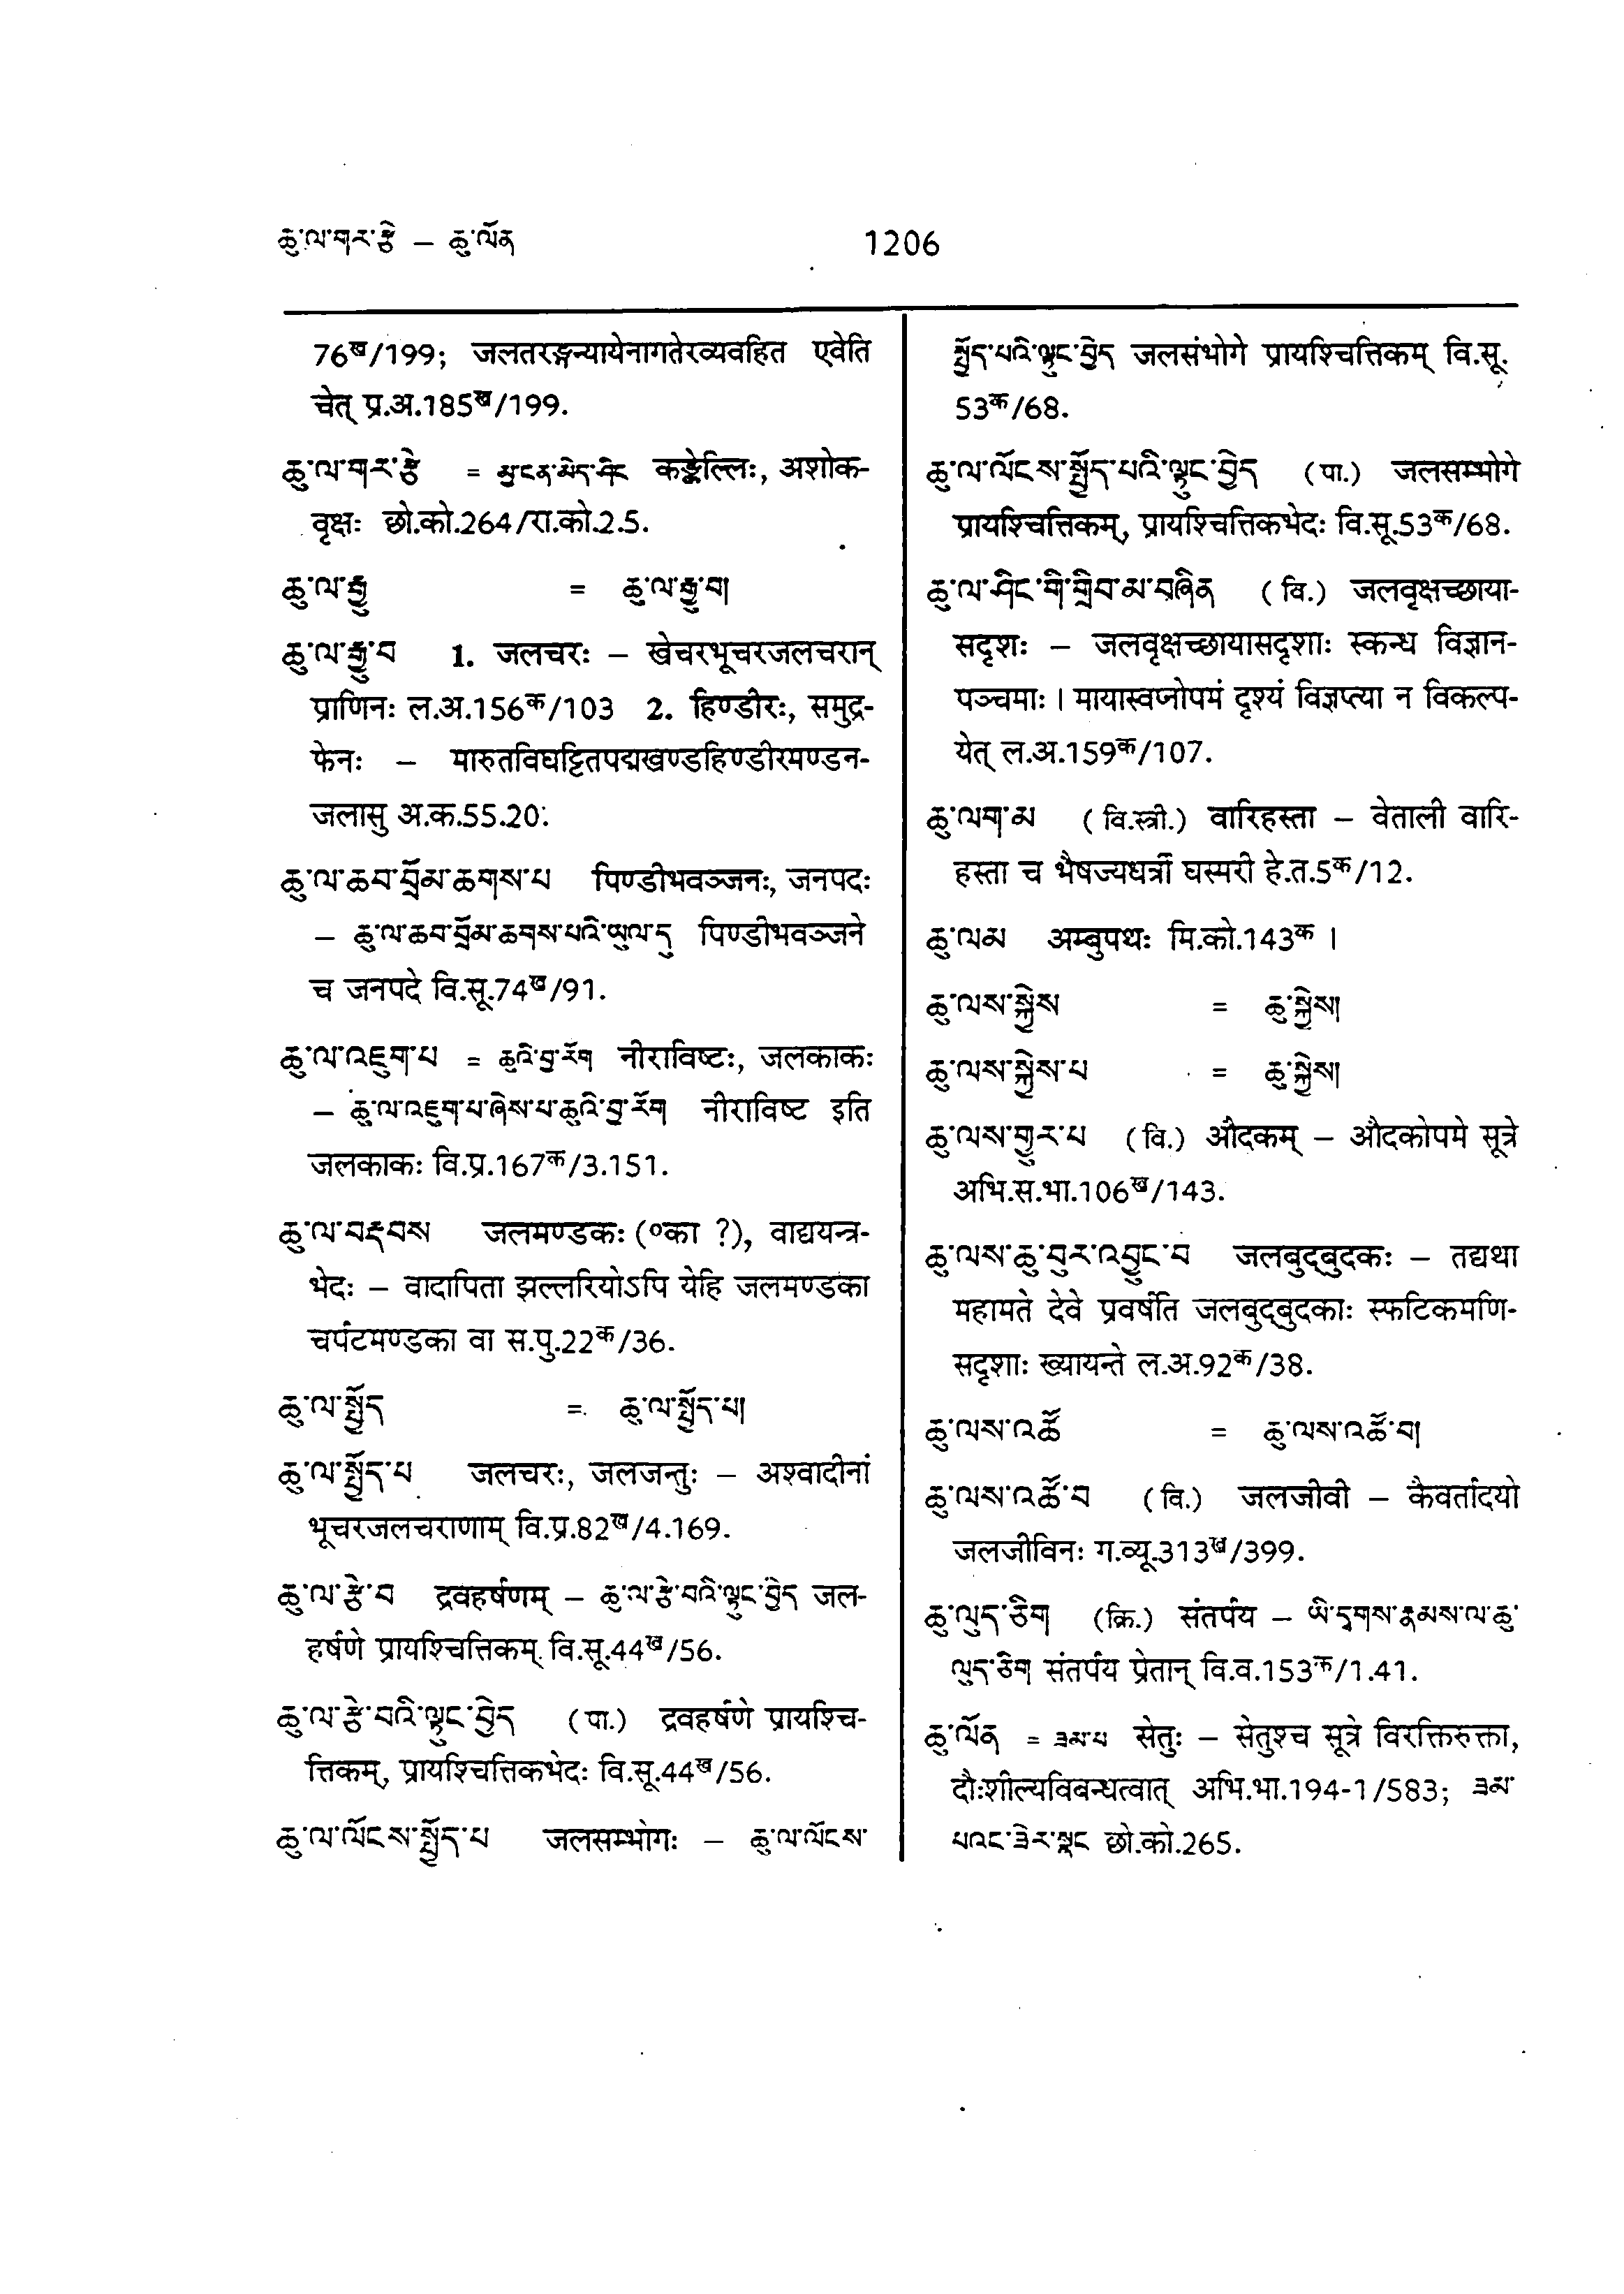 ཆུ་ལ་གར་རྩེ – ཆུ་ལོན
1206
76ख/199; जलतरङ्गन्यायेनागतेरव्यवहित एवेति
चेत् प्र.अ.185ख/199.
ཆུ་ལ་གར་རྩེ = མྱ་ངན་མེད་ཤིང कङ्केल्लिः, अशोक-
वृक्षः छो.को.264/रा.को.2.5.
ཆུ་ལ་རྒྱུ = ཆུ་ལ་རྒྱུ་བ།
ཆུ་ལ་རྒྱུ་བ 1. जलचरः – खेचरभूचरजलचरान्
प्राणिनः ल.अ.156क/103 2. हिण्डीरः, समुद्र-
फेनः – मारुतविघट्टितपद्मखण्डहिण्डीरमण्डन-
जलासु अ.क.55.20.
ཆུ་ལ་ཆབ་བྲོམ་ཆགས་པ पिण्डीभवञ्जनः, जनपदः
– ཆུ་ལ་ཆབ་བྲོམ་ཆགས་པའི་ཡུལ་དུ पिण्डीभवञ्जने
च जनपदे वि.सू.74ख/91.
ཆུ་ལ་འཇུག་པ = ཆུའི་བྱ་རོག नीराविष्टः, जलकाकः
– ཆུ་ལ་འཇུག་པ་ཞེས་པ་ཆུའི་བྱ་རོག नीराविष्ट इति
जलकाकः वि.प्र.167क/3.151.
ཆུ་ལ་བརྡབས जलमण्डकः (०का ?), वाद्ययन्त्र-
भेदः – वादापिता झल्लरियोऽपि येहि जलमण्डका
चर्पटमण्डका वा स.पु.22क/36.
ཆུ་ལ་སྤྱོད = ཆུ་ལ་སྤྱོད་པ།
ཆུ་ལ་སྤྱོད་པ जलचरः, जलजन्तुः – अश्वादीनां
भूचरजलचराणाम् वि.प्र.82ख/4.169.
ཆུ་ལ་རྩེ་བ द्रवहर्षणम् – ཆུ་ལ་རྩེ་བའི་ལྟུང་བྱེད जल-
हर्षणे प्रायश्चित्तिकम् वि.सू.44ख/56.
ཆུ་ལ་རྩེ་བའི་ལྟུང་བྱེད (पा.) द्रवहर्षणे प्रायश्चि-
त्तिकम्, प्रायश्चित्तिकभेदः वि.सू.44ख/56.
ཆུ་ལ་ལོངས་སྤྱོད་པ जलसम्भोगः – ཆུ་ལ་ལོངས་
སྤྱོད་པའི་ལྟུང་བྱེད जलसंभोगे प्रायश्चित्तिकम् वि.सू.
53क/68.
ཆུ་ལ་ལོངས་སྤྱོད་པའི་ལྟུང་བྱེད (पा.) जलसम्भोगे
प्रायश्चित्तिकम्, प्रायश्चित्तिकभेदः वि.सू.53क/68.
ཆུ་ལ་ཤིང་གི་གྲིབ་མ་བཞིན (वि.) जलवृक्षच्छाया-
सदृशः – जलवृक्षच्छायासदृशाः स्कन्ध विज्ञान-
पञ्चमाः । मायास्वप्नोपमं दृश्यं विज्ञप्त्या न विकल्प-
येत् ल.अ.159क/107.
ཆུ་ལག་མ (वि.स्त्री.) वारिहस्ता – वेताली वारि-
हस्ता च भैषज्यधर्त्री घस्मरी हे.त.5क/12.
ཆུ་ལམ अम्बुपथः मि.को.143क ।
ཆུ་ལས་སྐྱེས = ཆུ་སྐྱེས།
ཆུ་ལས་སྐྱེས་པ = ཆུ་སྐྱེས།
ཆུ་ལས་གྱུར་པ (वि.) औदकम् – औदकोपमे सूत्रे
अभि.स.भा.106ख/143.
ཆུ་ལས་ཆུ་བུར་འབྱུང་བ जलबुद्बुदकः – तद्यथा
महामते देवे प्रवर्षति जलबुद्बुदकाः स्फटिकमणि-
सदृशाः ख्यायन्ते ल.अ.92क/38.
ཆུ་ལས་འཚོ = ཆུ་ལས་འཚོ་བ།
ཆུ་ལས་འཚོ་བ (वि.) जलजीवी – कैवर्तादयो
जलजीविनः ग.व्यू.313ख/399.
ཆུ་ལུད་ཅིག (क्रि.) संतर्पय – ཡི་དྭགས་རྣམས་ལ་ཆུ་
ལུད་ཅིག संतर्पय प्रेतान् वि.व.153क/1.41.
ཆུ་ལོན = ཟམ་པ सेतुः – सेतुश्च सूत्रे विरक्तिरुक्ता,
दौःशील्यविबन्धत्वात् अभि.भा.194-1/583; ཟམ་
པའང་ཟེར་སྣང छो.को.265.